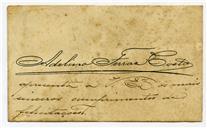 Adelino Ferraz Costa
apresenta a V. Ex. os mais
sinceros cumprimentos de
felicitações.